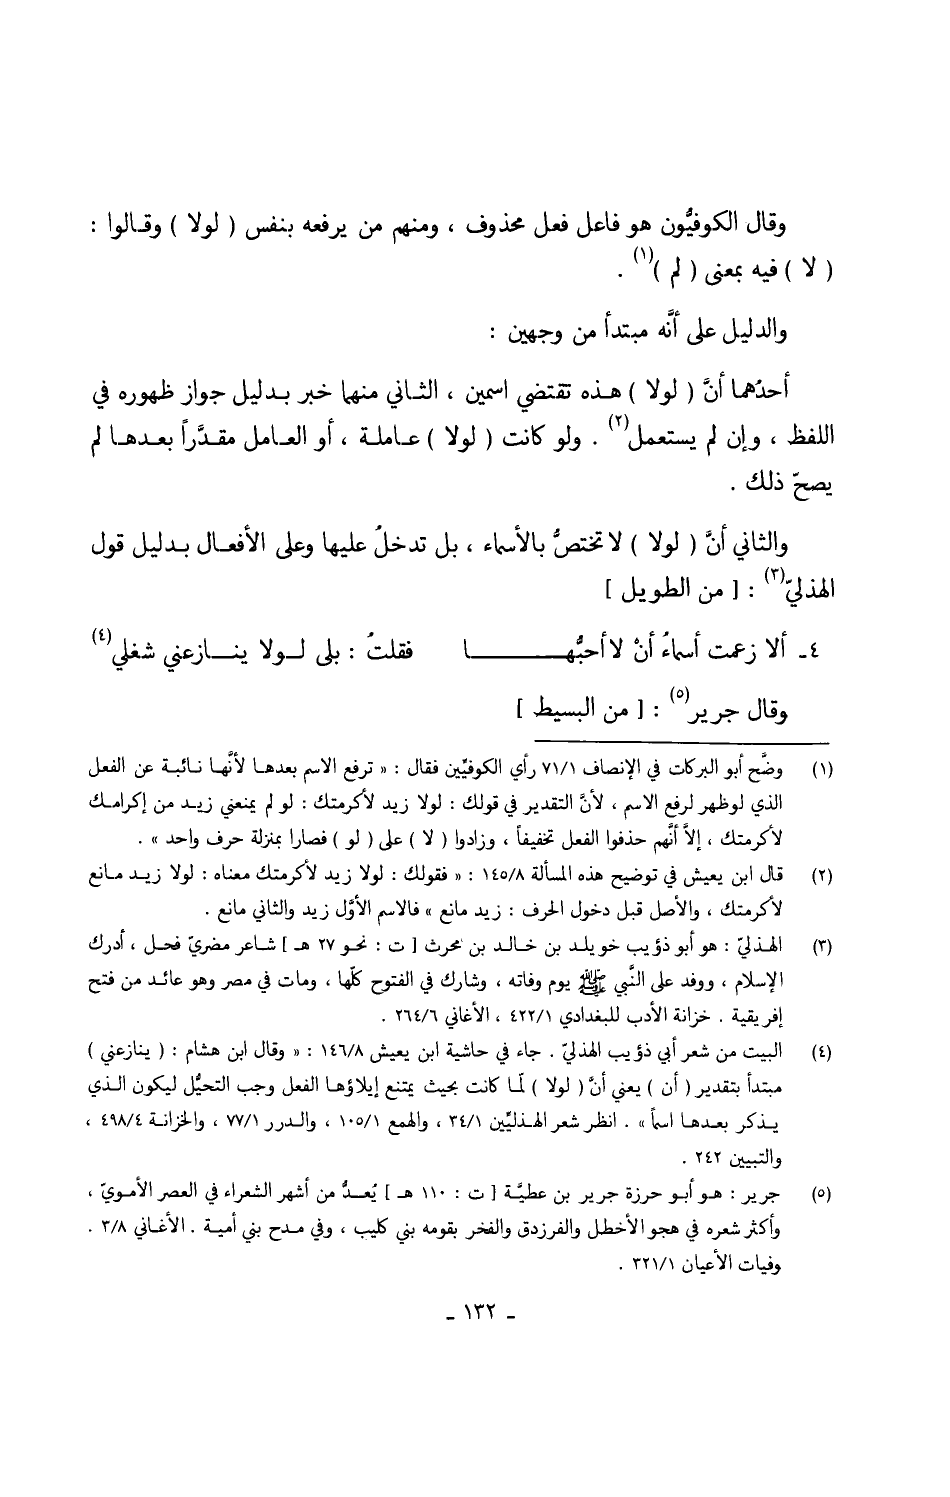 وقال الكوفيُّون هو فاعل فعل محذوف ، ومنهم من يرفعه بنفس ( لولا ) وقـالوا :
( لا ) فيه بمعنى ( لم )(١) .
والدليل على أنَّه مبتدأ من وجهين :
أحدُهما أنَّ ( لولا ) هـذه تقتضي اسمين ، الثـاني منهما خبر بـدليل جواز ظهوره في
اللفظ ، وإن لم يستعمل(٢) . ولو كانت ( لولا ) عـاملـة ، أو العـامل مقـدَّراً بعـدهـا لم
يصحّ ذلك .
والثاني أنَّ ( لولا ) لا تختصُّ بالأسماء ، بل تدخلُ عليها وعلى الأفعـال بـدليل قول
الهذليّ(٣) : [ من الطويل ]
٤ ـ ألا زعمت أسماءُ أنْ لا أحبُّهـــــــــــا فقلتُ : بلى لـولا ينـــازعني شغلي(٤)
وقال جرير(٥) : [ من البسيط ]
(١) وضَّح أبو البركات في الإنصاف ٧١/١ رأي الكوفيِّين فقال : « ترفع الاسم بعدهـا لأنَّها نـائبـة عن الفعل
الذي لوظهر لرفع الاسم ، لأنَّ التقدير في قولك : لولا زيد لأكرمتك : لو لم يمنعني زيـد من إكرامـك
لأكرمتك ، إلاَّ أنَّهم حذفوا الفعل تخفيفاً ، وزادوا ( لا ) على ( لو ) فصارا بمنزلة حرف واحد » .
(٢) قال ابن يعيش في توضيح هذه المسألة ١٤٥/٨ : « فقولك : لولا زيد لأكرمتك معناه : لولا زيـد مـانع
لأكرمتك ، والأصل قبل دخول الحرف : زيد مانع » فالاسم الأوَّل زيد والثاني مانع .
(٣) الهـذليّ : هو أبو ذؤيب خويلـد بن خـالـد بن محرث [ ت : نحو ٢٧ هـ ] شـاعر مضريّ فحل ، أدرك
الإسلام ، ووفد على النَّبي ﷺ يوم وفاته ، وشارك في الفتوح كلّها ، ومات في مصر وهو عائـد من فتح
إفريقية . خزانة الأدب للبغدادي ٤٢٢/١ ، الأغاني ٢٦٤/٦ .
(٤) البيت من شعر أبي ذؤيب الهذليّ . جاء في حاشية ابن يعيش ١٤٦/٨ : « وقال ابن هشام : ( ينازعني )
مبتدأ بتقدير ( أن ) يعني أنَّ ( لولا ) لمّا كانت بحيث يمتنع إيلاؤهـا الفعل وجب التحيُّل ليكون الـذي
يـذكر بعـدهـا اسماً » . انظر شعر الهـذليّين ٣٤/١ ، والهمع ١٠٥/١ ، والـدرر ٧٧/١ ، والخزانـة ٤٩٨/٤ ،
والتبيين ٢٤٢ .
(٥) جرير : هـو أبـو حرزة جرير بن عطيَّـة [ ت : ١١٠ هـ ] يُعـدُّ من أشهر الشعراء في العصر الأمـويّ ،
وأكثر شعره في هجو الأخطل والفرزدق والفخر بقومه بني كليب ، وفي مـدح بني أميـة . الأغـاني ٣/٨ .
وفيات الأعيان ٣٢١/١ .
ـ ١٣٢ ـ